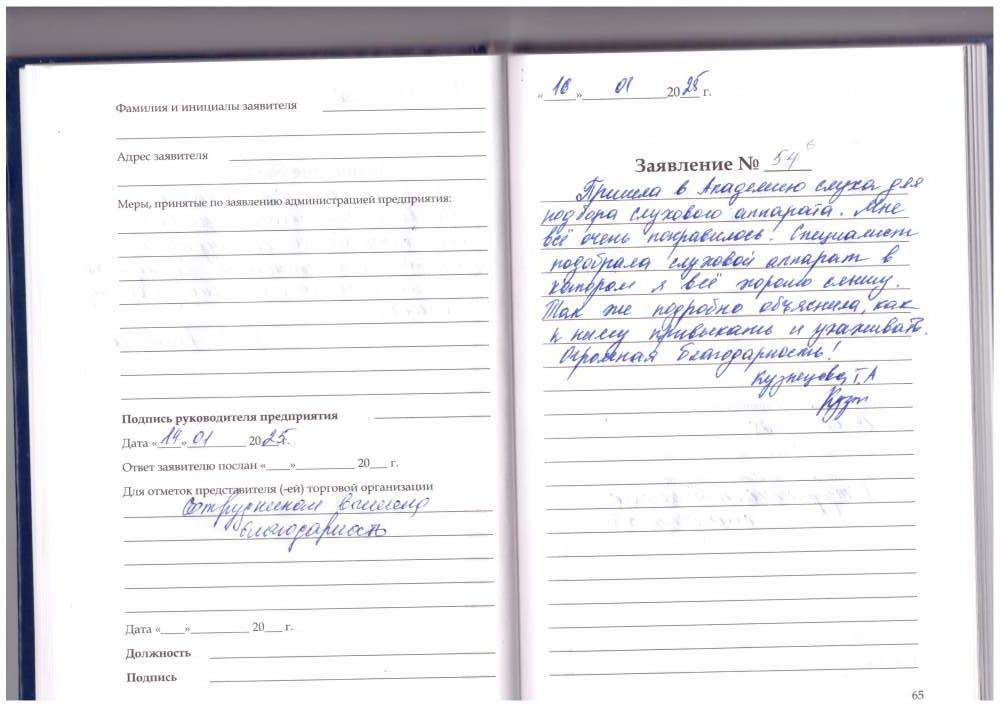 Фамилия и инициалы заявителя
Адрес заявителя
Меры, принятые по заявлению администрацией предприятия:
Подпись руководителя предприятия
Дата «14» 01 2025 г.
Ответ заявителю послан «____»__________ 20___ г.
Для отметок представителя (-ей) торговой организации
Сотрудникам
благодарность
Дата «____»__________ 20___ г.
Должность
Подпись
«16» 01 2025 г.
Заявление № 54
Пришла в Академию слуха для
подбора слухового аппарата. Мне
всё очень понравилось. Специалист
подобрала слуховой аппарат в
котором я всё хорошо слышу.
Так же подробно объяснила, как
к нему привыкать и ухаживать.
Огромная благодарность!
Кузнецова Т.А
65